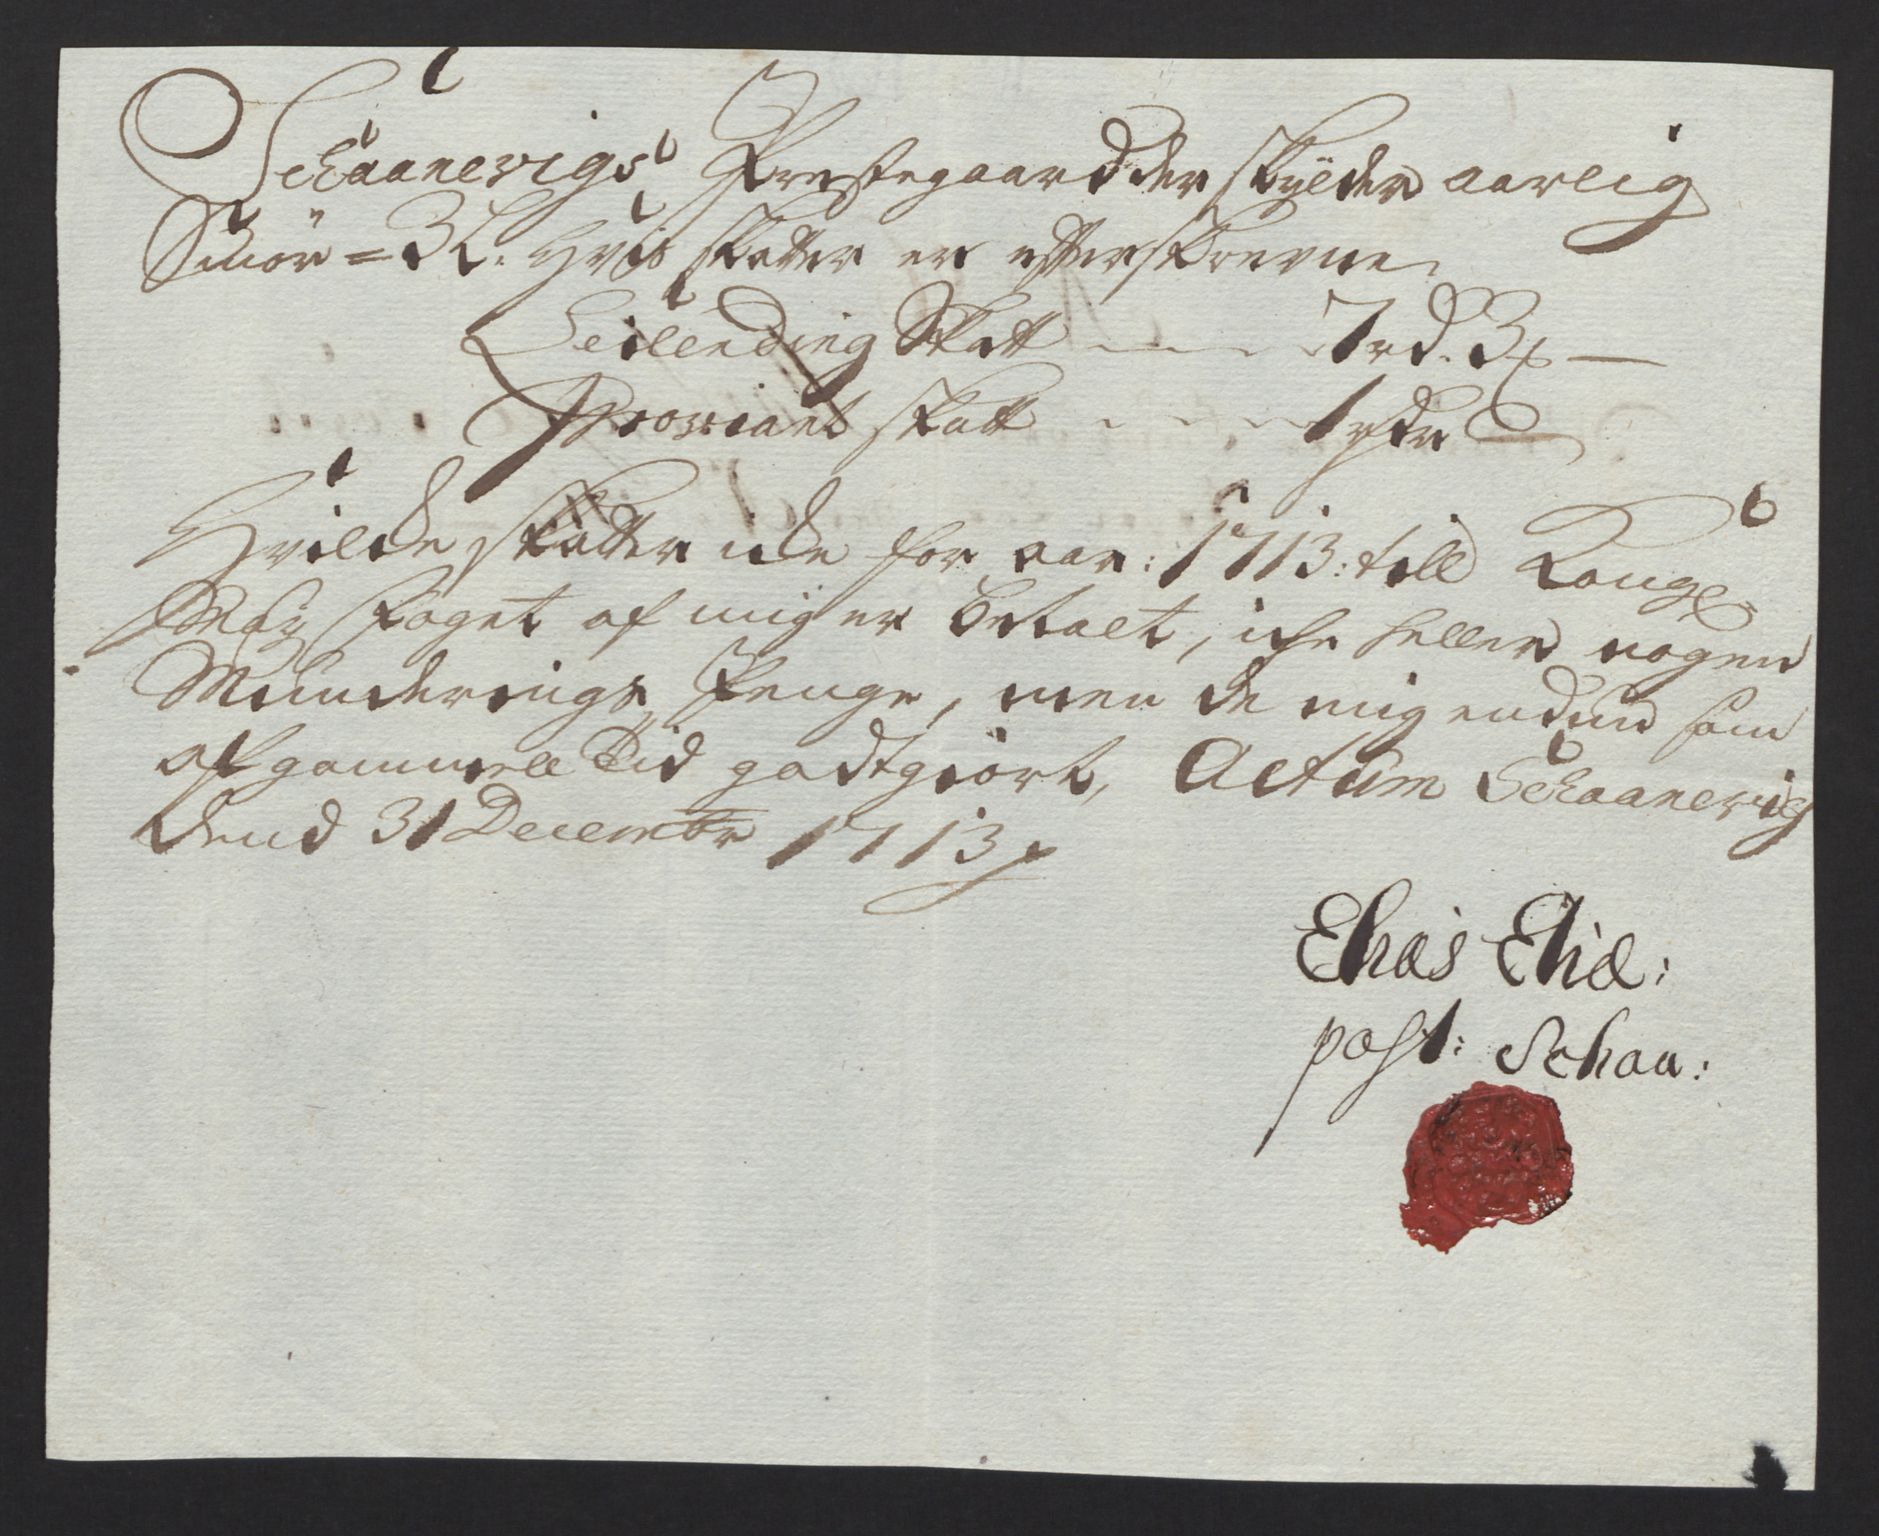 Schaanevigs Præstegaard der skÿlder aarlig
Smör = 3 L. Hvis skatter er efterskrevne
Leilending Skatt 7 rd. 3
Proviant skatt 1 rdr
Hvilche skatter iche for aar: 1713: till Kongl
May foget af mig er betalt, iche heller nogen
Munderings Penge, men de mig endnu som
af gammell Tid godtgiort, Actum Schaanevig
dend 31 Decembr 1713
Elias Eliæ:
past: Schaa: